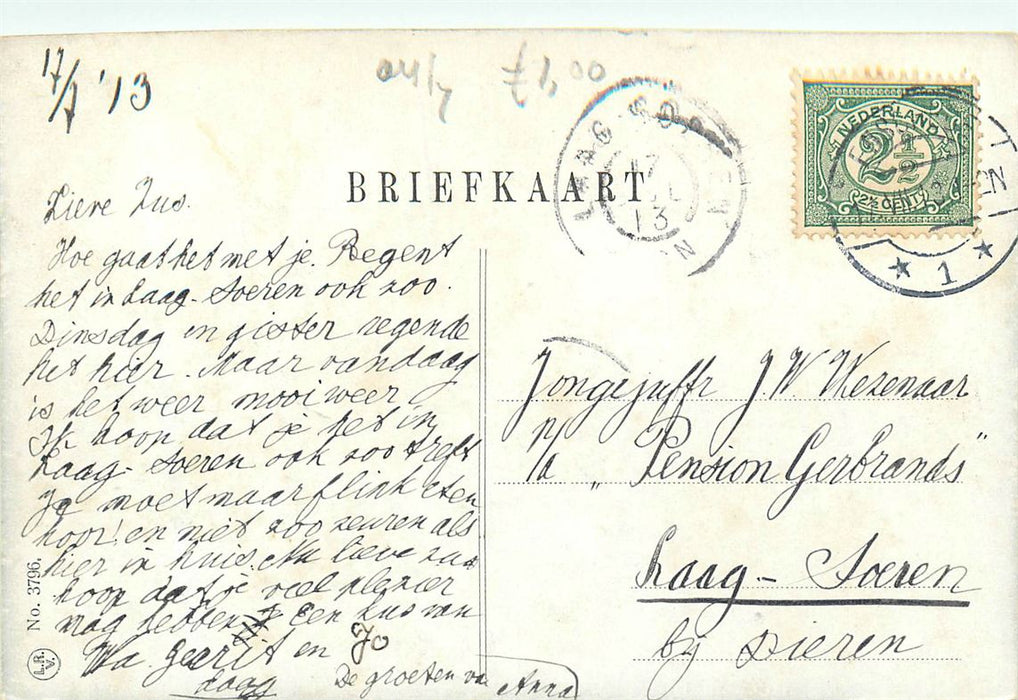 17/7 '13
£1,00
BRIEFKAART
LAAG-SOEREN
17
13
NEDERLAND
2½
2½ CENT
1
Lieve Zus.
Hoe gaat het met je. Regent
het in Laag-Soeren ook zoo.
Dinsdag en gister regende
het hier. Maar vandaag
is het weer mooi weer
Ik hoop dat je het in
Laag-Soeren ook zoo treft
Je moet maar flink eten
hoor! en niet zoo zeuren als
hier in huis. Nu lieve zus
hoop dat je veel plezier
mag hebben. Een kus van
Pa Gerrit en Jo
daag
De groeten van Anna
Jongejuffr J. W. Wezenaar
p/a „Pension Gerbrands"
Laag-Soeren
bij Dieren
No. 3796.